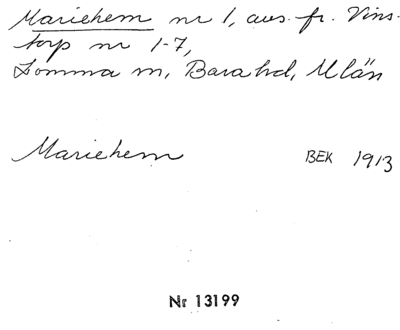 Mariehem nr 1, avs. fr. Vins-
torp nr 1-7,
Lomma m, Bara hd, M län
Mariehem BEK 1913
Nr 13199